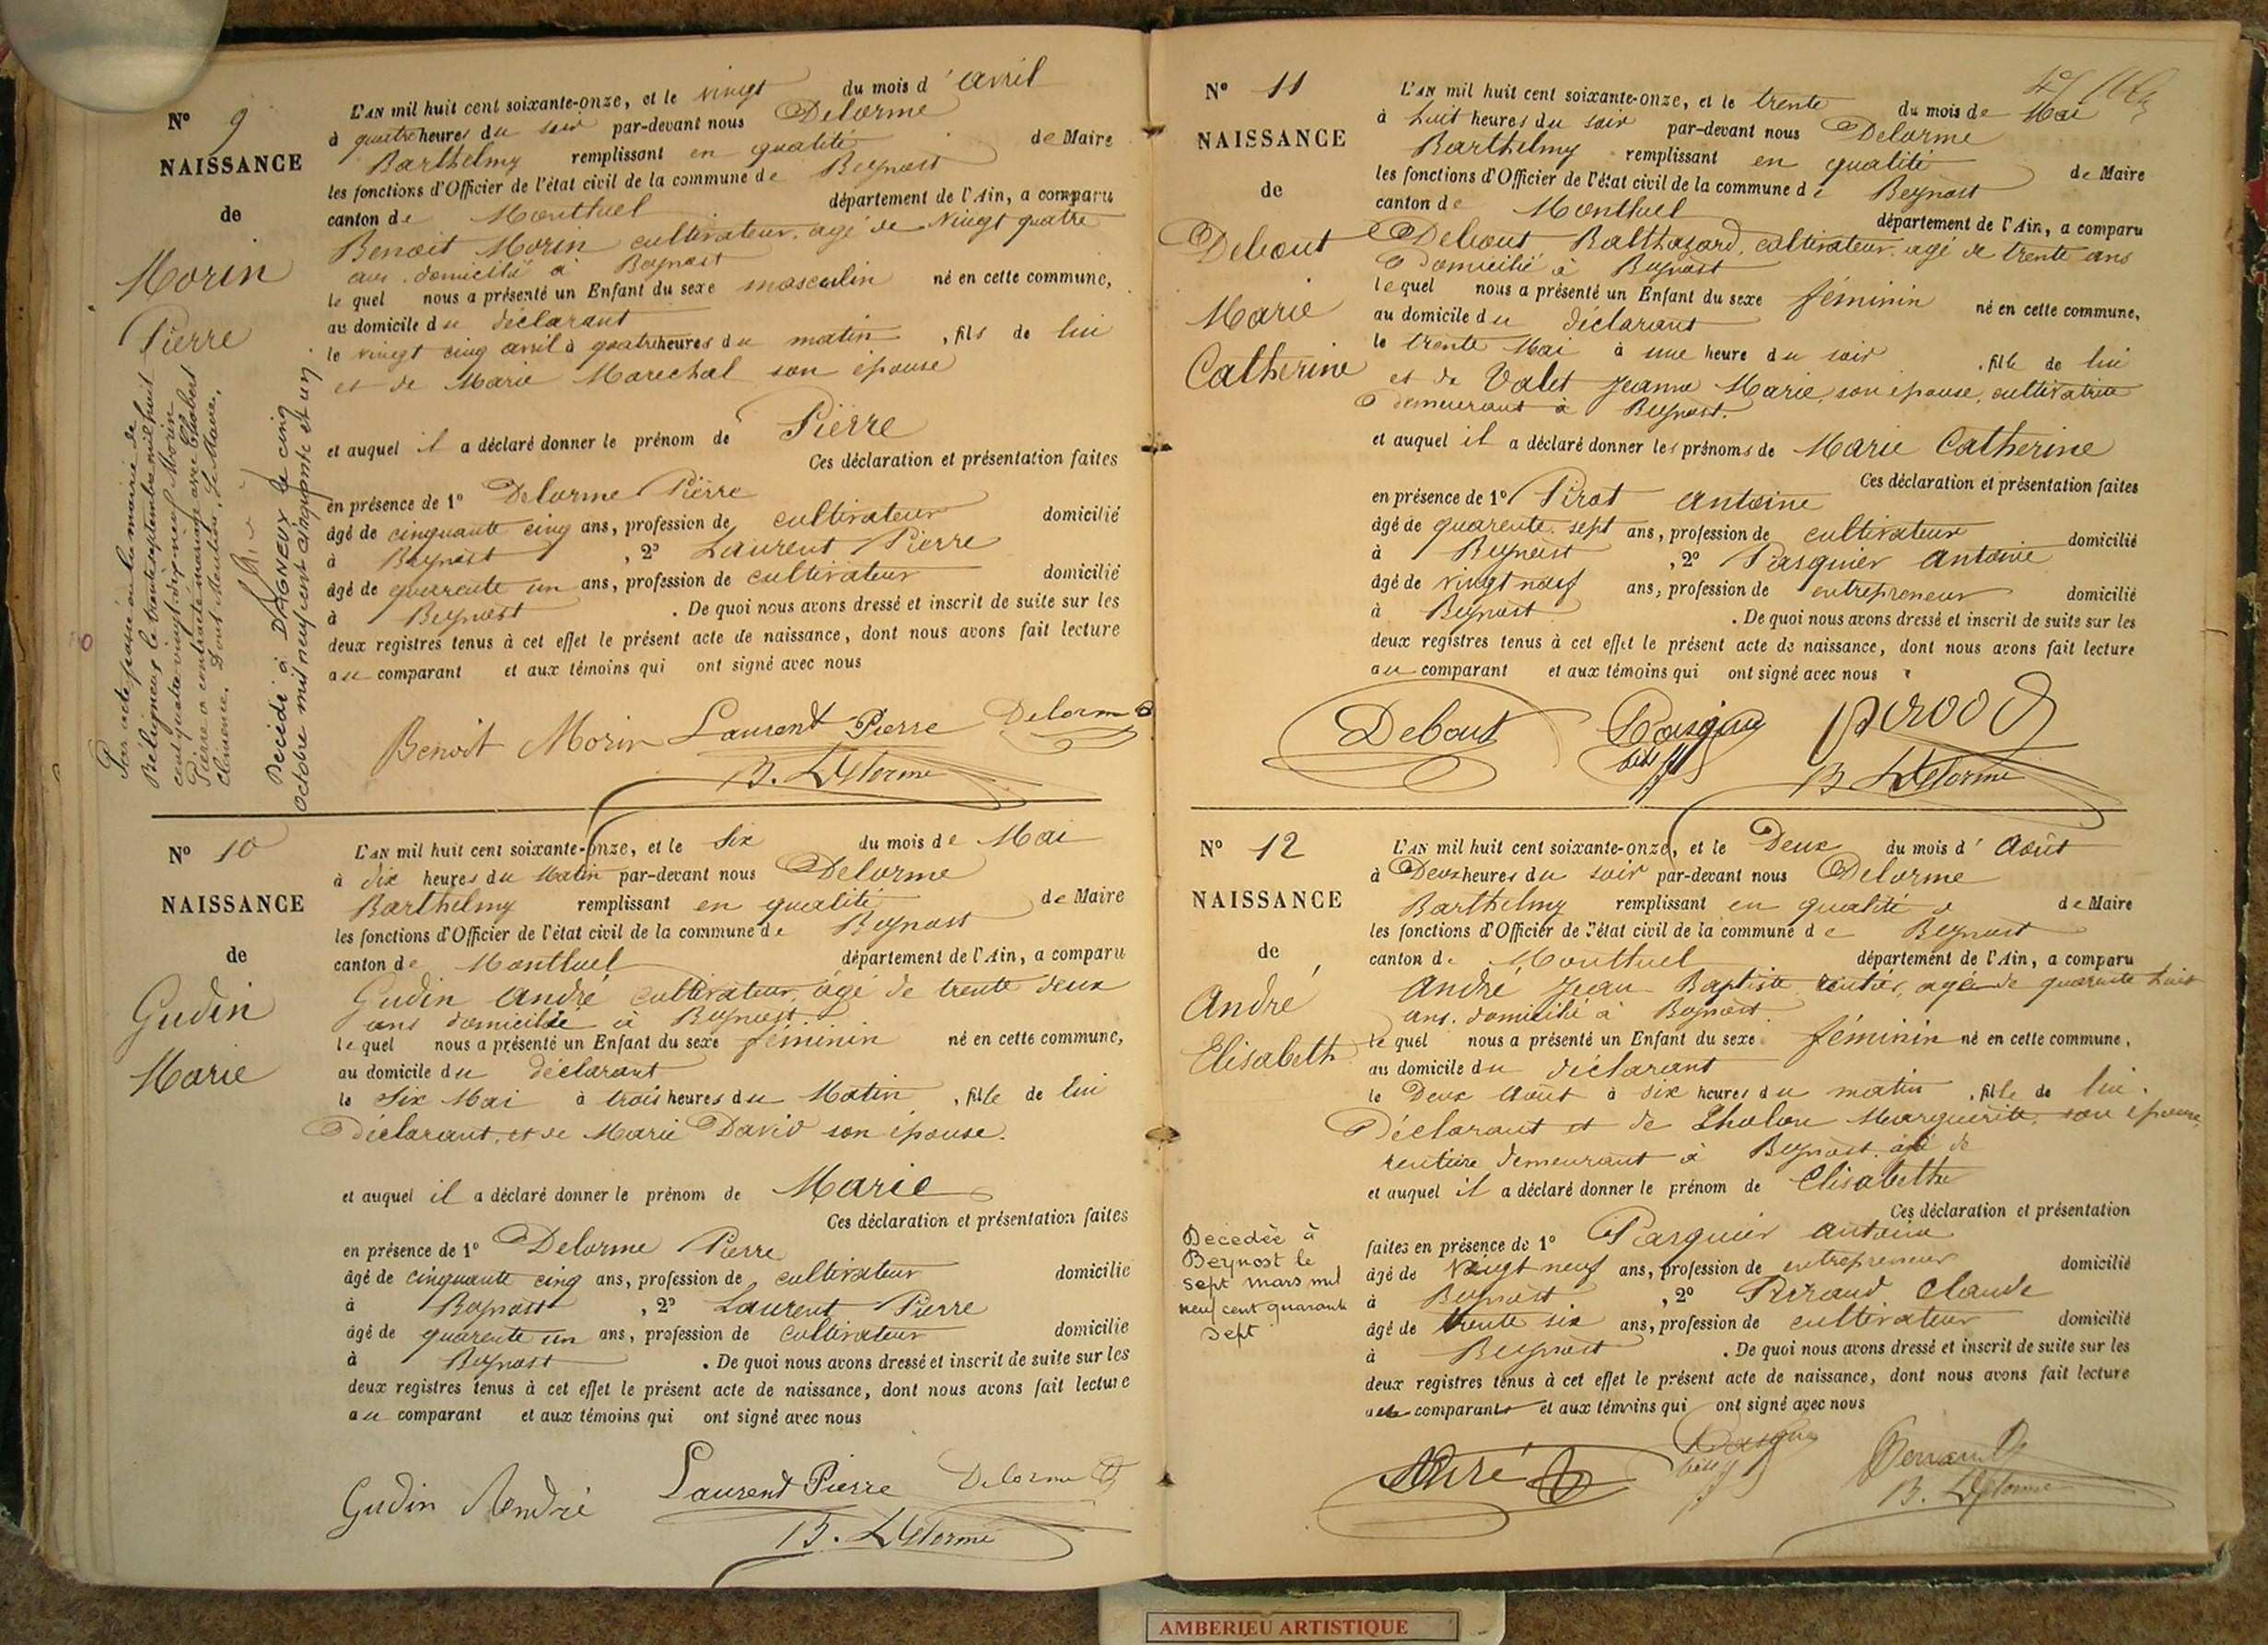 N° 9
NAISSANCE
de
Morin
Pierre
L'AN mil huit cent soixante-onze, et le vingt du mois d'avril
à quatre heures du soir par-devant nous Delorme
Barthelmy remplissant en qualité de Maire
les fonctions d'Officier de l'état civil de la commune de Beynost
canton de Montluel département de l'Ain, a comparu
Benoit Morin cultivateur, agé de vingt quatre
ans domicilié à Beynost
le quel nous a présenté un Enfant du sexe masculin né en cette commune,
au domicile du déclarant
le vingt cinq avril à quatre heures du matin, fils de lui
et de Marie Marechal son épouse
et auquel il a déclaré donner le prénom de Pierre
Ces déclaration et présentation faites
en présence de 1° Delorme Pierre
âgé de cinquante cinq ans, profession de cultivateur domicilié
à Beynost, 2° Laurent Pierre
âgé de quarente un ans, profession de cultivateur domicilié
à Beynost. De quoi nous avons dressé et inscrit de suite sur les
deux registres tenus à cet effet le présent acte de naissance, dont nous avons fait lecture
au comparant et aux témoins qui ont signé avec nous
Benoit Morin Laurent Pierre Delorme
B. Delorme
Par acte passé en la mairie de
Béligneux le trente septembre mil huit
cent quatre vingt dix neuf Morin
Pierre a contracté mariage avec Chabert
Clémence. Dont Mention, Le Maire,
Décédé à DAGNEUX le cinq
octobre mil neuf cent cinquante et un
N° 10
NAISSANCE
de
Gudin
Marie
L'AN mil huit cent soixante-onze, et le Six du mois de Mai
à dix heures du Matin par-devant nous Delorme
Barthelmy remplissant en qualité de Maire
les fonctions d'Officier de l'état civil de la commune de Beynost
canton de Montluel département de l'Ain, a comparu
Gudin André cultivateur, âgé de trente deux
ans domicilié à Beynost
le quel nous a présenté un Enfant du sexe féminin né en cette commune,
au domicile du déclarant
le Six Mai à trois heures du Matin, fille de lui
Déclarant, et de Marie David son épouse.
et auquel il a déclaré donner le prénom de Marie
Ces déclaration et présentation faites
en présence de 1° Delorme Pierre
âgé de cinquante cinq ans, profession de cultivateur domicilié
à Beynost, 2° Laurent Pierre
âgé de quarente un ans, profession de cultivateur domicilié
à Beynost. De quoi nous avons dressé et inscrit de suite sur les
deux registres tenus à cet effet le présent acte de naissance, dont nous avons fait lecture
au comparant et aux témoins qui ont signé avec nous
Gudin André Laurent Pierre Delorme
B. Delorme
N° 11
NAISSANCE
de
Debout
Marie
Catherine
L'AN mil huit cent soixante-onze, et le trente du mois de Mai
à huit heures du soir par-devant nous Delorme
Barthelmy remplissant en qualité de Maire
les fonctions d'Officier de l'état civil de la commune de Beynost
canton de Montluel département de l'Ain, a comparu
Debout Balthazard, cultivateur agé de trente ans
domicilié à Beynost
lequel nous a présenté un Enfant du sexe féminin né en cette commune,
au domicile du déclarant
le trente Mai à une heure du soir, fille de lui
et de Valet Jeanne Marie, son épouse, cultivatrice
demeurant à Beynost.
et auquel il a déclaré donner les prénoms de Marie Catherine
Ces déclaration et présentation faites
en présence de 1° Pirot Antoine
âgé de quarente sept ans, profession de cultivateur domicilié
à Beynost, 2° Pasquier Antoine
âgé de vingt neuf ans, profession de entrepreneur domicilié
à Beynost. De quoi nous avons dressé et inscrit de suite sur les
deux registres tenus à cet effet le présent acte de naissance, dont nous avons fait lecture
au comparant et aux témoins qui ont signé avec nous
Debout
B Delorme
N° 12
NAISSANCE
de
André
Elisabeth
L'AN mil huit cent soixante-onze, et le Deux du mois d'Août
à Deux heures du soir par-devant nous Delorme
Barthelmy remplissant en qualité de Maire
les fonctions d'Officier de l'état civil de la commune de Beynost
canton de Montluel département de l'Ain, a comparu
André Jean Baptiste rentier, agé de quarente huit
ans. domicilié à Beynost
le quel nous a présenté un Enfant du sexe féminin né en cette commune,
au domicile du déclarant
le Deux Août à six heures du matin, fille de lui.
Déclarant et de Marguerite, son épouse,
rentière demeurant à Beynost
et auquel il a déclaré donner le prénom de Elisabeth
Ces déclaration et présentation
faites en présence de 1° Pasquier Antoine
âgé de Vingt neuf ans, profession de entrepreneur domicilié
à Beynost, 2° Claude
âgé de trente six ans, profession de cultivateur domicilié
à Beynost. De quoi nous avons dressé et inscrit de suite sur les
deux registres tenus à cet effet le présent acte de naissance, dont nous avons fait lecture
comparants et aux témoins qui ont signé avec nous
André
B. Delorme
Décedée à
Beynost le
sept mars mil
neuf cent quarante
sept
AMBERIEU ARTISTIQUE